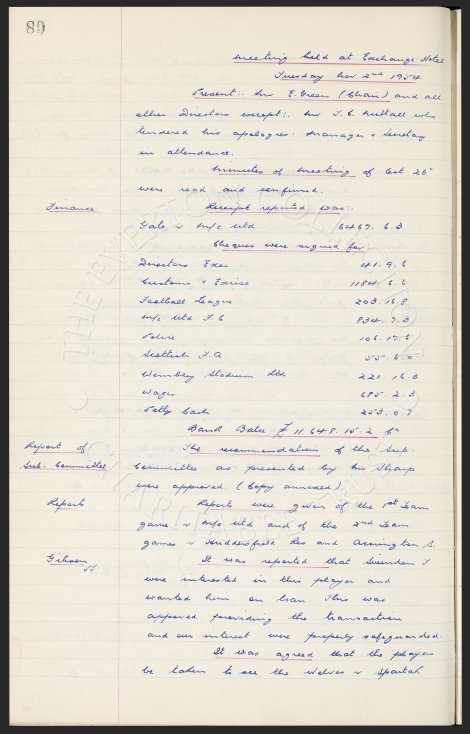 89
Meeting held at Exchange Hotel
Tuesday Nov 2nd 1954
Present:- Mr E. Green (Chair) and all
other Directors except:- Mr T. C. Nuttall who
tendered his apologies. Manager & Secretary
in attendance.
Minutes of Meeting of Oct 26th
were read and confirmed.
Finance Receipt reported was:-
Gate v M/c Utd 6467. 6. 3
Cheques were signed for:-
Directors Exes 41. 9. 6
Customs & Excise 1184. 6. 6
Football League 203. 16. 8
M/c Utd F. C 834. 7. 3
Police 106. 17. 6
Scottish F. A 55. 0. 0
Wembley Stadium Ltd 221. 16. 3
Wages 685. 2. 3
Petty Cash 253. 0. 7
Band Balce £ 11,648. 15. 2 Cr
Report of The recommendations of the Sub-
Sub. Committee Committee as presented by Mr Sharp
were approved. (Copy annexed).
Reports Reports were given of the 1st Team
game v M/c Utd and of the 2nd Team
games v Huddersfield Res and Accrington S.
Gibson It was reported that Swindon T
were interested in this player and
wanted him on loan. This was
approved providing the transaction
and our interest were properly safeguarded.
It was agreed that the players
be taken to see the Wolves v Spartak
THE EVERTON COLLECTION
CHARITABLE TRUST